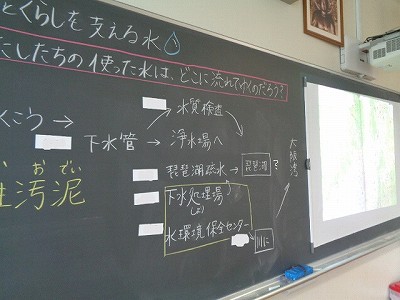 とくらしを支える水
たしたちの使った水は、どこに流れてゆくのだろう?
水質検査
くこう → 下水管 → 浄水場へ
琵琶湖疏水 → 琵琶湖?
大阪湾
おでい
性汚泥
下水処理場
しょり
水環境保全センター
川に